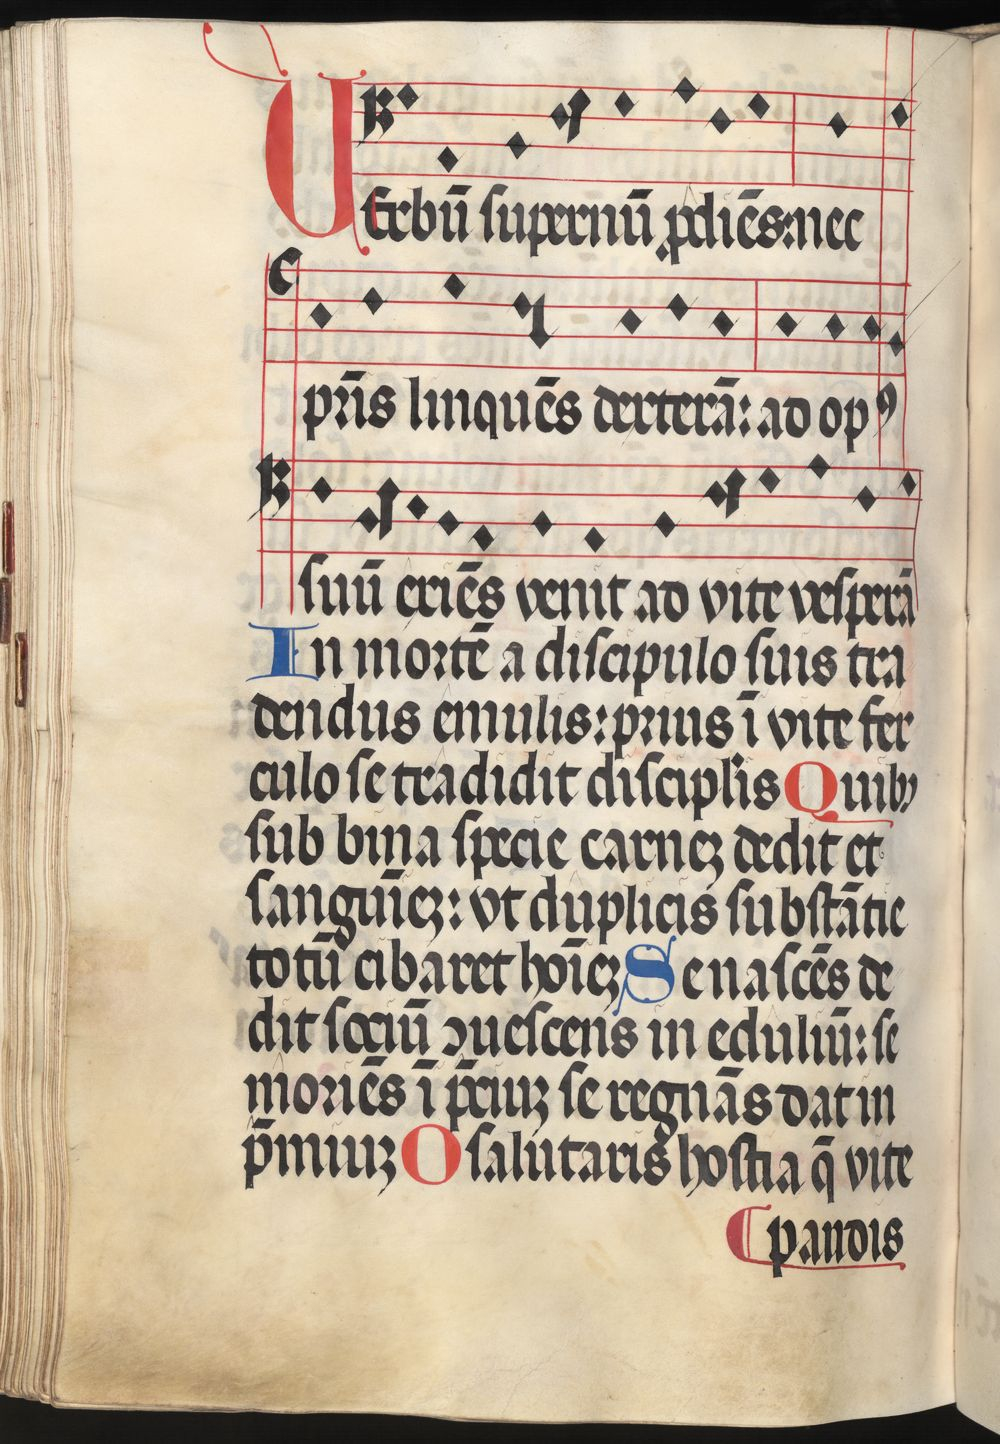 Verbū supernū ꝓdiēs: nec
pr̄is linquēs dexterā: ad opꝰ
suū exiēs venit ad vite vesperā
In mortē a discipulo suis tra
dendus emulis: prius ī vite fer
culo se tradidit discipl̓is Quibꝫ
sub bina specie carneꝫ dedit et
sangūieꝫ: vt duplicis substātie
totū cibaret hoīeꝫ Se nascēs de
dit sociū ꝯuescens in ediliū: se
moriēs ī p̄ciuꝫ se regnās dat in
p̄miuꝫ O salutaris hostia q̄ vite
pandis